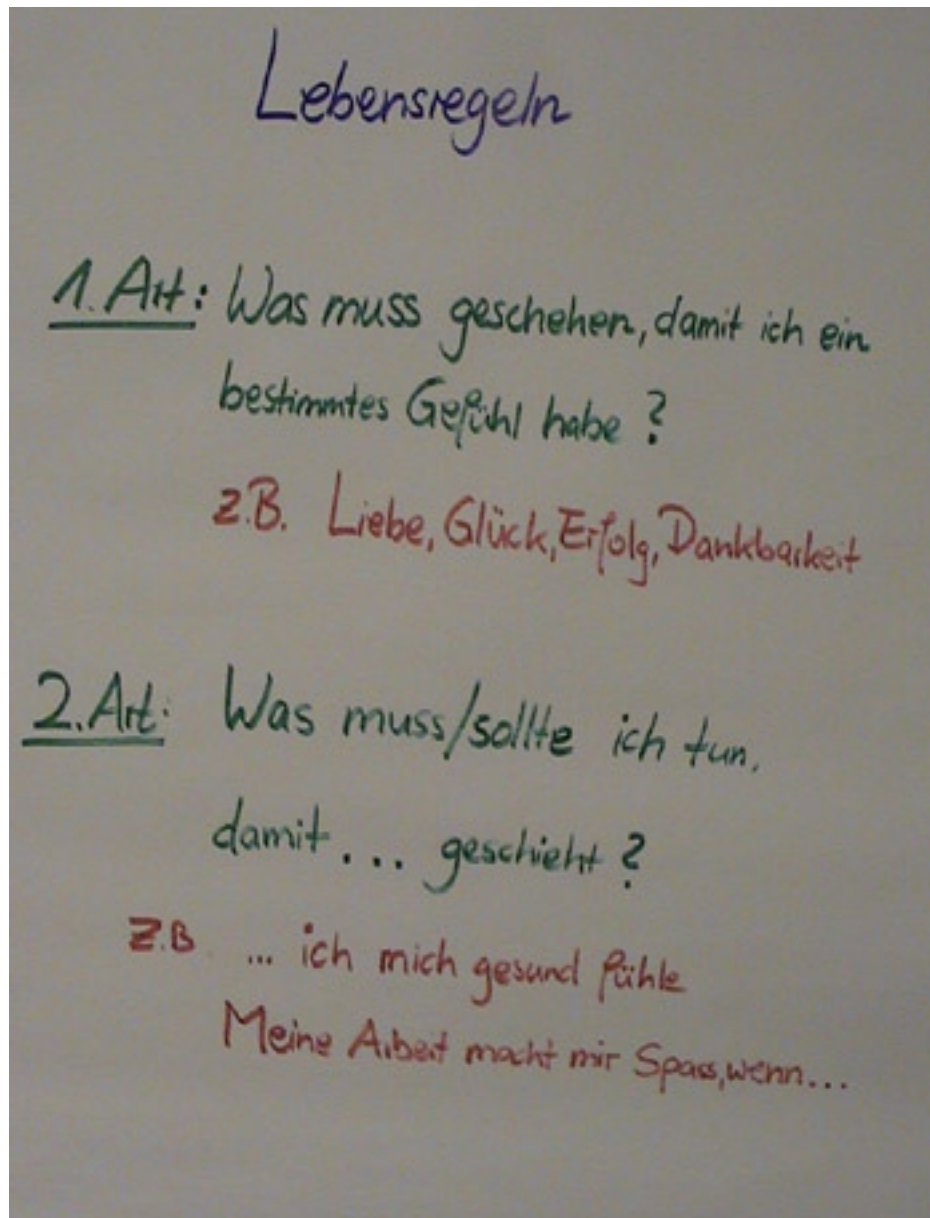 Lebensregeln
1. Art: Was muss geschehen, damit ich ein
bestimmtes Gefühl habe ?
z.B. Liebe, Glück, Erfolg, Dankbarkeit
2. Art: Was muss/sollte ich tun,
damit ... geschieht ?
z.B ... ich mich gesund fühle
Meine Arbeit macht mir Spass, wenn...